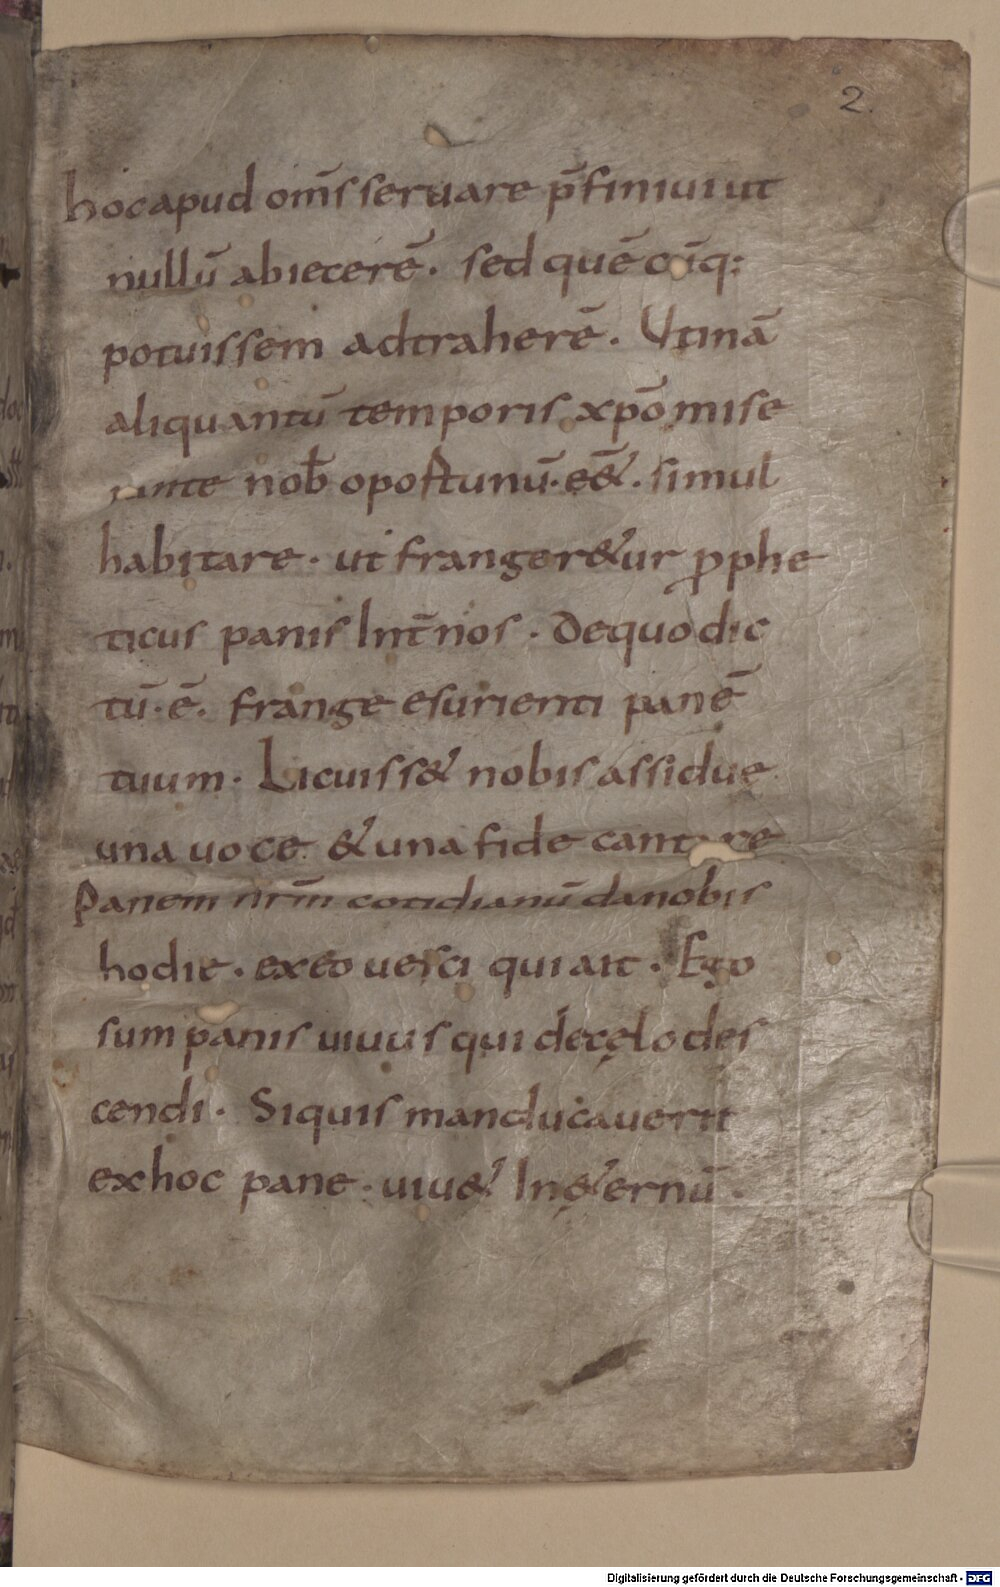 2.
hoc apud om̄s seruare p̄finiui ut
nullū abiecerē. sed quē cūq:
potuissem adtraherē. Utinā
aliquantū temporis xp̄o mise
rante nob̄ oportunū. eē&. simul
habitare. ut franger&ur ꝓphe
ticus panis Int̄ nos. dequo dic
tū. ē. frange esurienti panē
tuum. Licuiss& nobis assidue
una uoce. & una fide cantare
Panem nr̄m cotidianū da nobis
hodie. ex eo uesci qui ait. Ego
sum panis uiuus qui de cęlo des
cendi. Siquis manducauerit
ex hoc pane. uiu& In &ernū.
Digitalisierung gefördert durch die Deutsche Forschungsgemeinschaft - DFG